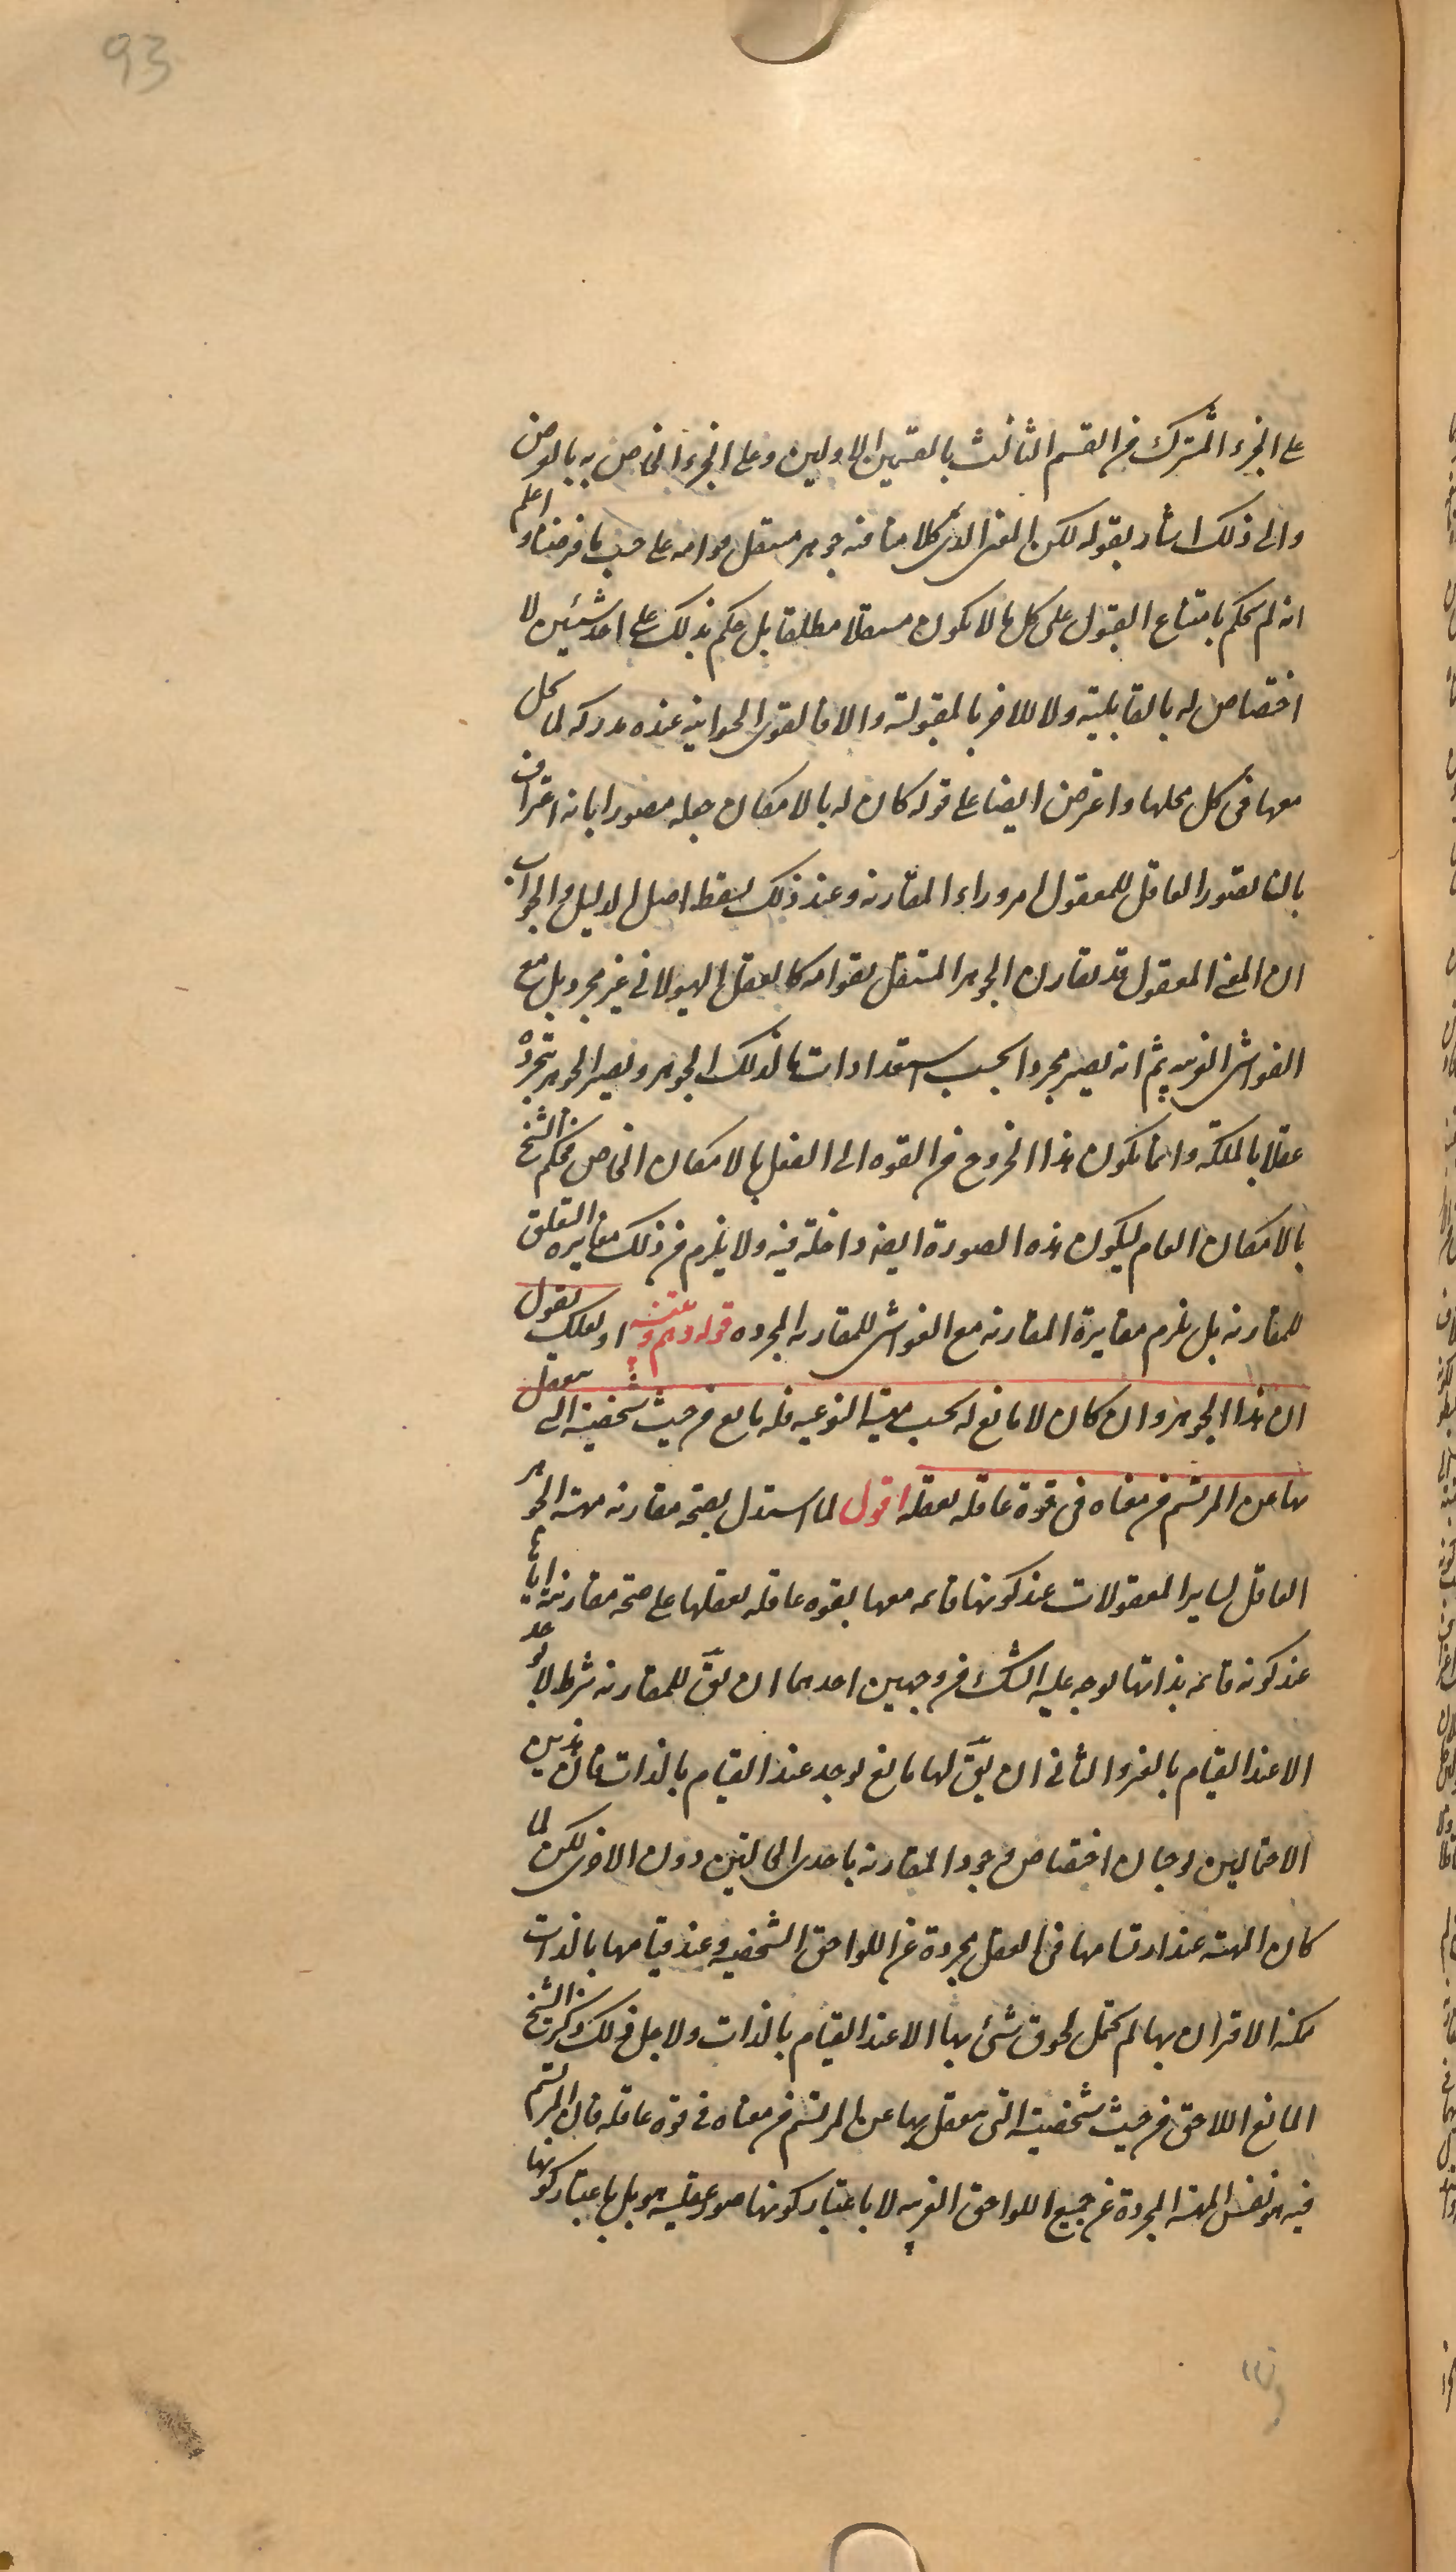 93
على الجزء المشترك من القسم الثالث بالقسمين الاولين وعلى الجزء الخاص به بالعرض
والى ذلك اشار بقوله لكن المعنى الذى كلامنا فيه جوهر مستقل بقوامه على حسب ما فرضناه واعلم
انه لم يحكم بامتناع القبول على كل ما لا يكون مستقلا مطلقا بل حكم بذلك على احد شيئين لا
اختصاص له بالقابلية ولا للاخر بالمقبولية والا فالقوى الحيوانية عنده مدركة لما يحل
معها فى كل محلها واعترض ايضا على قوله كان له بالامكان جعله متصورا بانه اعتراف
بان تصور العاقل للمعقول امر وراء المقارنة وعند ذلك يسقط اصل الدليل والجواب
ان المعنى المعقول قد يقارن الجوهر المستقل بقوامه كالعقل الهيولانى غير مجرد بل مع
الغواشى الغريبة ثم انه يصير مجردا بحسب استعدادات ما لذلك الجوهر ويصير الجوهر بتجرده
عقلا بالملكة وانما يكون هذا الخروج من القوه الى الفعل بالامكان الخاص فحكم الشيخ
بالامكان العام ليكون هذه الصورة ايضا داخلة فيه ولا يلزم من ذلك مغايره التعلق
للمقارنه بل يلزم مغايرة المقارنه مع الغواشى للمقارنه المجرده قوله وهم وتنبيه او لعلك تقول
ان هذا الجوهر وان كان لا مانع له بحسب مهيته النوعيه فله مانع من حيث شخصيته التى ينفصل
بها عن المرتسم من معناه فى قوة عاقله تعقله اقول لما استدل بصحة مقارنه مهية الجوهر
العاقل لساير المعقولات عند كونها قائمه معها بقوه عاقله تعقلها على صحة مقارنتها اياها
عند كونه قائمه بذاتها توجه عليه الشك من وجهين احدهما ان يق للمقارنه شرط لا يوجد
الا عند القيام بالغير والثانى ان يق لها مانع يوجد عند القيام بالذات فان هذين
الاحتمالين يوجبان اختصاص وجود المقارنه باحدى الحالتين دون الاخرى لكن لما
كان المهية عند ارتسامها فى العقل مجردة عن اللواحق الشخصيه وعند قيامها بالذات
ممكنه الاقتران بها لم يحتمل لحوق شئ بها الا عند القيام بالذات ولاجل ذلك ذكر الشيخ
المانع اللاحق من حيث شخصيته التى ينفصل بها عن المرتسم من معناه فى قوة عاقله فان المرتسم
فيه هو نفس المهية المجردة عن جميع اللواحق الغريبه لا باعتبار كونها صورة عقليه هو بل باعتبار كونها